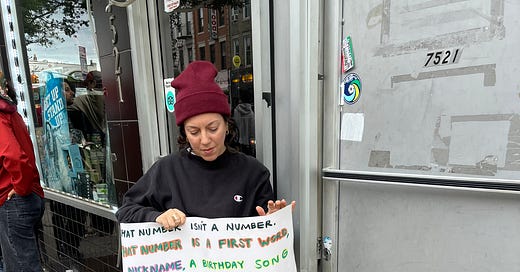 7521
GET UP
STAND
UP
HAT NUMBER ISN'T A NUMBER.
HAT NUMBER IS A FIRST WORD,
NICKNAME, A BIRTHDAY SONG